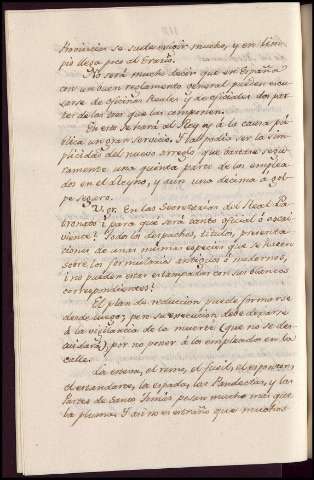 Provincias se suele escribir mucho, y en limpio
pio llega poco al Erario.
No será mucho decir que en España
con un buen reglamento general pudieran escu-
sarse de oficinas Reales y de oficiales dos par-
tes de las tres que las componen.
En esto se hará al Rey y á la causa pú-
blica un gran servicio. Tal podia ser la sim-
plicidad del nuevo arreglo que bastase segu-
ramente una quinta parte de los emplea-
dos en el Reyno, y aun una decima á gol-
pe seguro.
V. gr. En las Secretarías del Real Pa-
tronato ¿para qué será tanto oficial ó escri-
viente? Todos los despachos, titulos, presenta-
ciones de unas mismas especies que se hacen
sobre los formularios antiguos ó modernos,
¿no pueden estar estampados con sus blancos
correspondientes?
El plan de reducion puede formarse
desde luego; pero su execucion debe dexarse
á la vigilancia de la muerte (que no se des-
cuidará), por no poner á los empleados en la
calle.
La esteva, el remo, el fusil, el esponton,
el estandarte, la espada, las Pandectas, y las
Partes de Santo Tomás pesan mucho más que
la pluma. Y así no es extraño que muchos